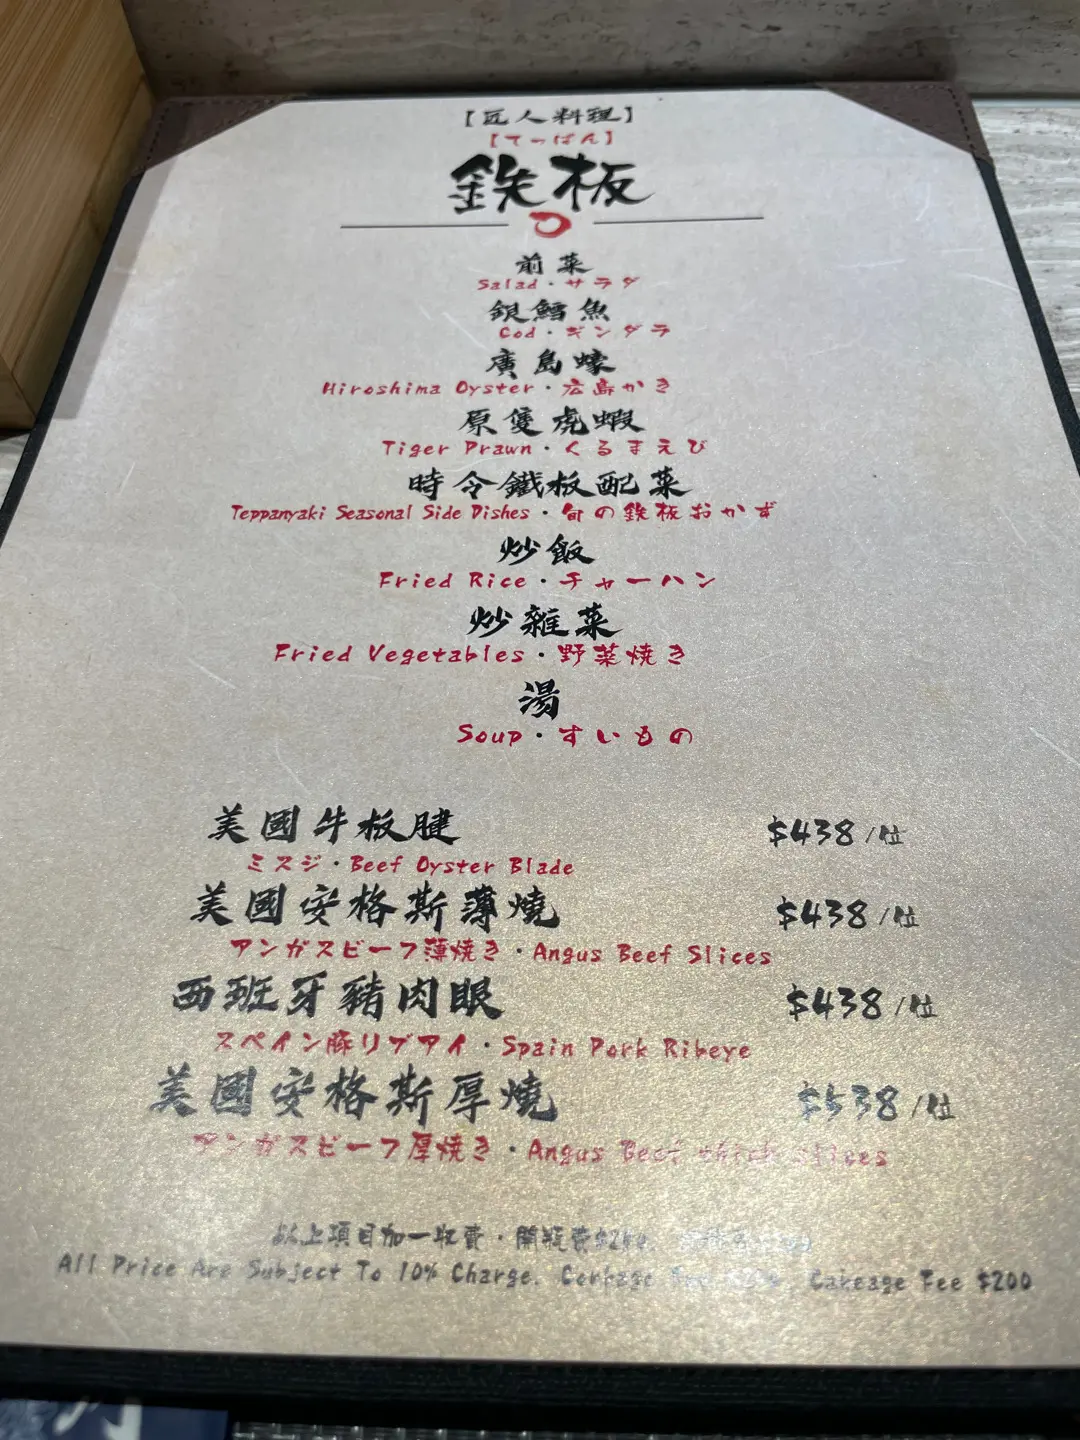 【匠人料理】
【てっぱん】
鉄板
前菜
Salad・サラダ
銀鱈魚
Cod・ギンダラ
廣島蠔
Hiroshima Oyster・広島かき
原隻虎蝦
Tiger Prawn・くるまえび
時令鐵板配菜
Teppanyaki Seasonal Side Dishes・旬の鉄板おかず
炒飯
Fried Rice・チャーハン
炒雜菜
Fried Vegetables・野菜焼き
湯
Soup・すいもの
美國牛板腱 $438/位
ミスジ・Beef Oyster Blade
美國安格斯薄燒 $438/位
アンガスビーフ薄焼き・Angus Beef Slices
西班牙豬肉眼 $438/位
スペイン豚リブアイ・Spain Pork Ribeye
美國安格斯厚燒 $538/位
アンガスビーフ厚焼き・Angus Beef thick slices
以上項目加一收費・開瓶費
All Price Are Subject To 10% Charge. Corkage Cakeage Fee $200